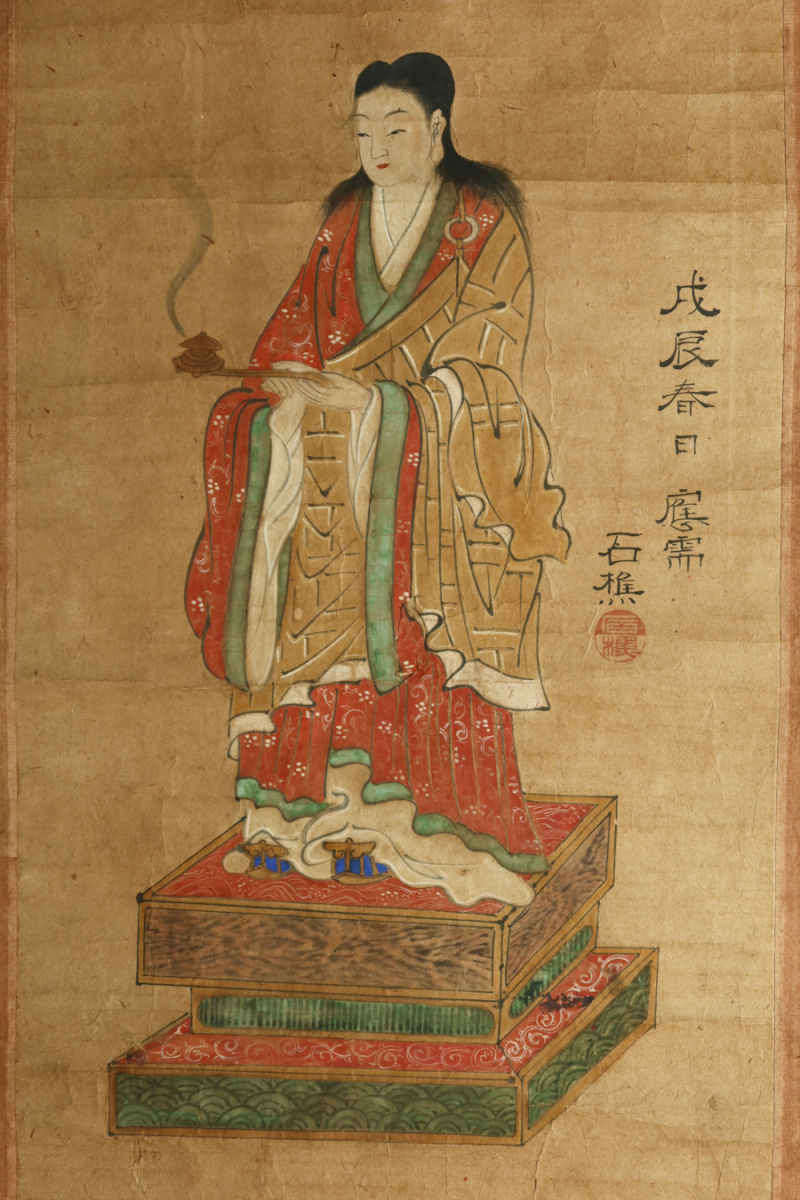 戊辰春日 應需
石樵